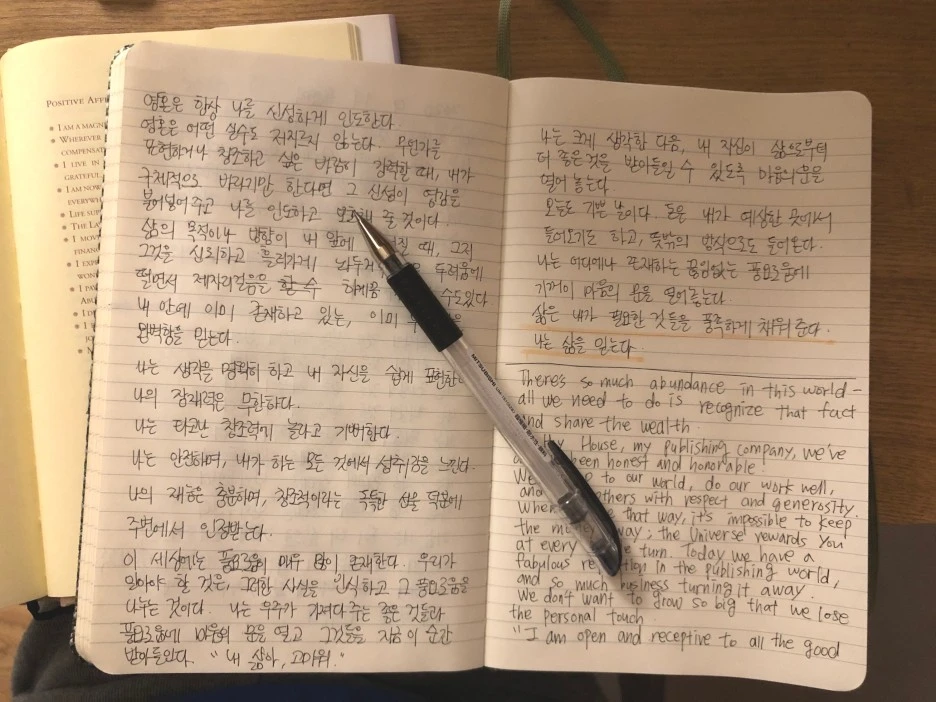 POSITIVE AFF
I AM A MAGN
WHEREVER
COMPENSAT
I LIVE IN
GRATEFUL
I AM NOW
EVERYWH
LIFE SUP
THE LA
I MOV
FINANC
I EXP
WON
I PA
ABU
I D
I
JO
N
영혼은 항상 나를 신성하게 인도한다.
영혼은 어떤 실수도 저지르지 않는다. 무언가를
표현하거나 창조하고 싶은 바람이 강력할 때, 내가
구체적으로 바라기만 한다면 그 신성이 영감을
불어넣어주고 나를 인도하고 줄 것이다.
삶의 목적이나 방향이 내 앞에 때, 그저
그것을 신뢰하고 흘러가게 두려움에
떨면서 제자리걸음을 할 수 하게끔 수도있다
내 안에 이미 존재하고 있는, 이미
완벽함을 믿는다.
나는 생각을 명확히 하고 내 자신을 쉽게
나의 잠재력은 무한하다.
나는 타고난 창조력에 놀라고 기뻐한다.
나는 안전하며, 내가 하는 모든 것에서 성취감을 느낀다.
나의 재능은 충분하며, 창조적이라는 독특한 선물 덕분에
주변에서 인정받는다.
이 세상에는 풍요로움이 매우 많이 존재한다. 우리가
알아야 할 것은, 그러한 사실을 인식하고 그 풍요로움을
나누는 것이다. 나는 우주가 가져다 주는 좋은 것들과
풍요로움에 마음의 문을 열고 그것들을 지금 이 순간
받아들인다. "내 삶아, 고마워."
나는 크게 생각한 다음, 내 자신이 삶으로부터
더 좋은 것을 받아들일 수 있도록 마음의 문을
열어 놓는다.
오늘도 기쁜 날이다. 돈은 내가 예상한 곳에서
들어오기도 하고, 뜻밖의 방식으로도 들어온다.
나는 어디에나 존재하는 끊임없는 풍요로움에
기꺼이 마음의 문을 열어놓는다.
삶은 내가 필요한 것들을 풍족하게 채워준다.
나는 삶을 믿는다.
There's so much abundance in this world -
all we need to do is recognize that fact
and share the wealth.
House, my publishing company, we've
been honest and honorable.
We to our world, do our work well,
and others with respect and generosity.
When that way, it's impossible to keep
the way; the Universe rewards you
at every turn. Today we have a
fabulous in the publishing world,
and so much business turning it away.
We don't want to grow so big that we lose
the personal touch.
"I am open and receptive to all the good
MITSUBISHI